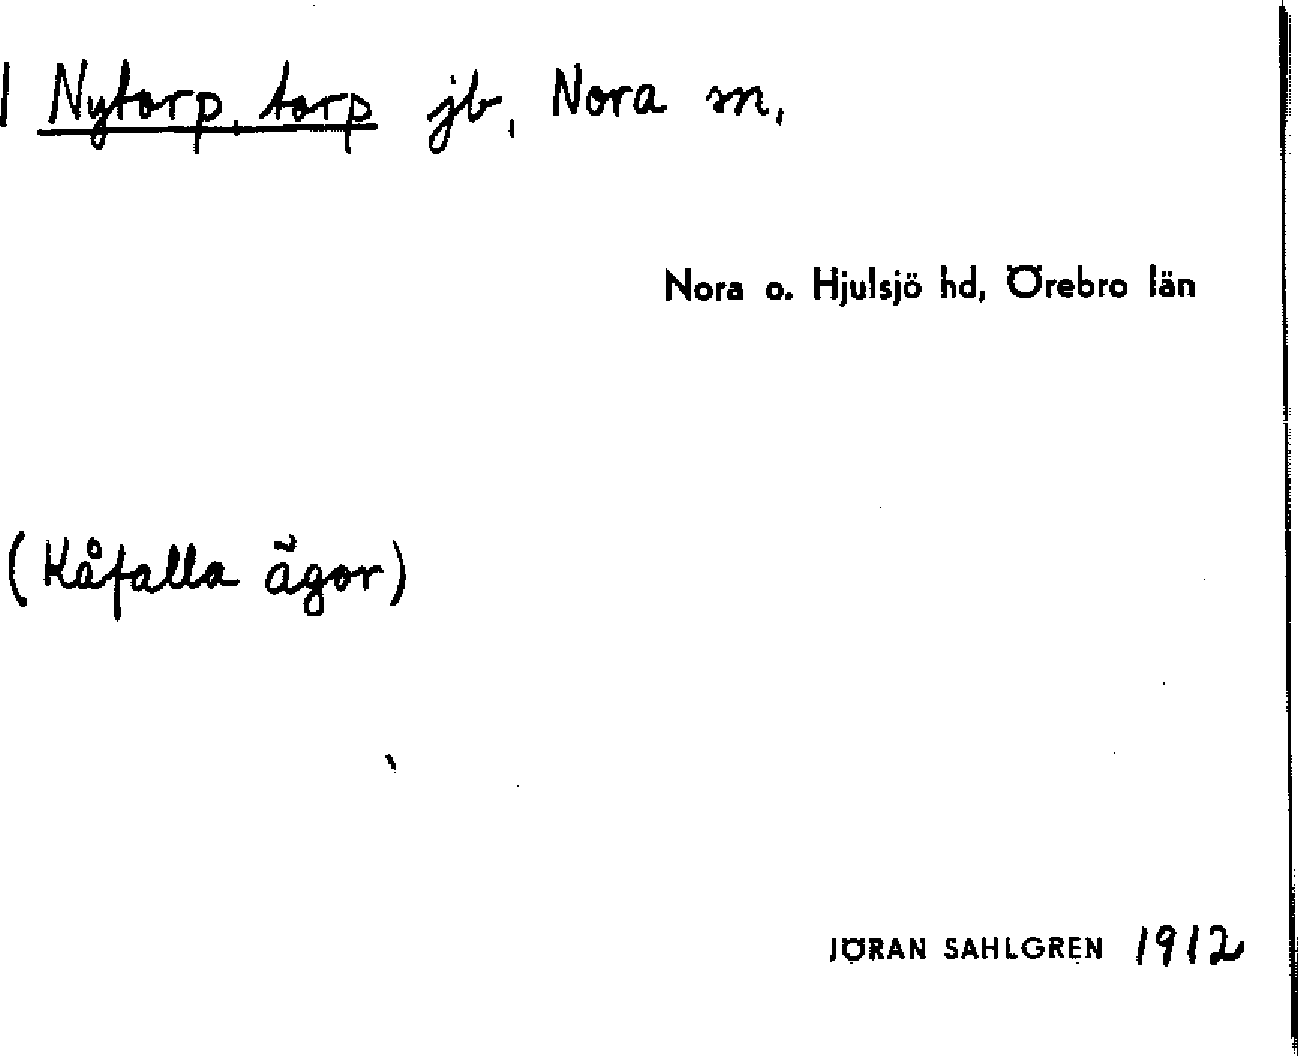 1 Nytorp, torp jb, Nora sn,
Nora o. Hjulsjö hd, Örebro län
(Kåfalla ägor)
JÖRAN SAHLGREN 1912